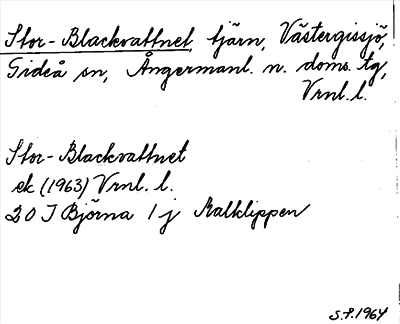 Stor-Blackvattnet, tjärn, Västergissjö,
Gideå sn, Ångermanl. n. doms. tg,
Vrnl. l.
Stor-Blackvattnet
ek (1963) Vrnl. l.
20 I Björna 1 j Kalklippen
S.F. 1964